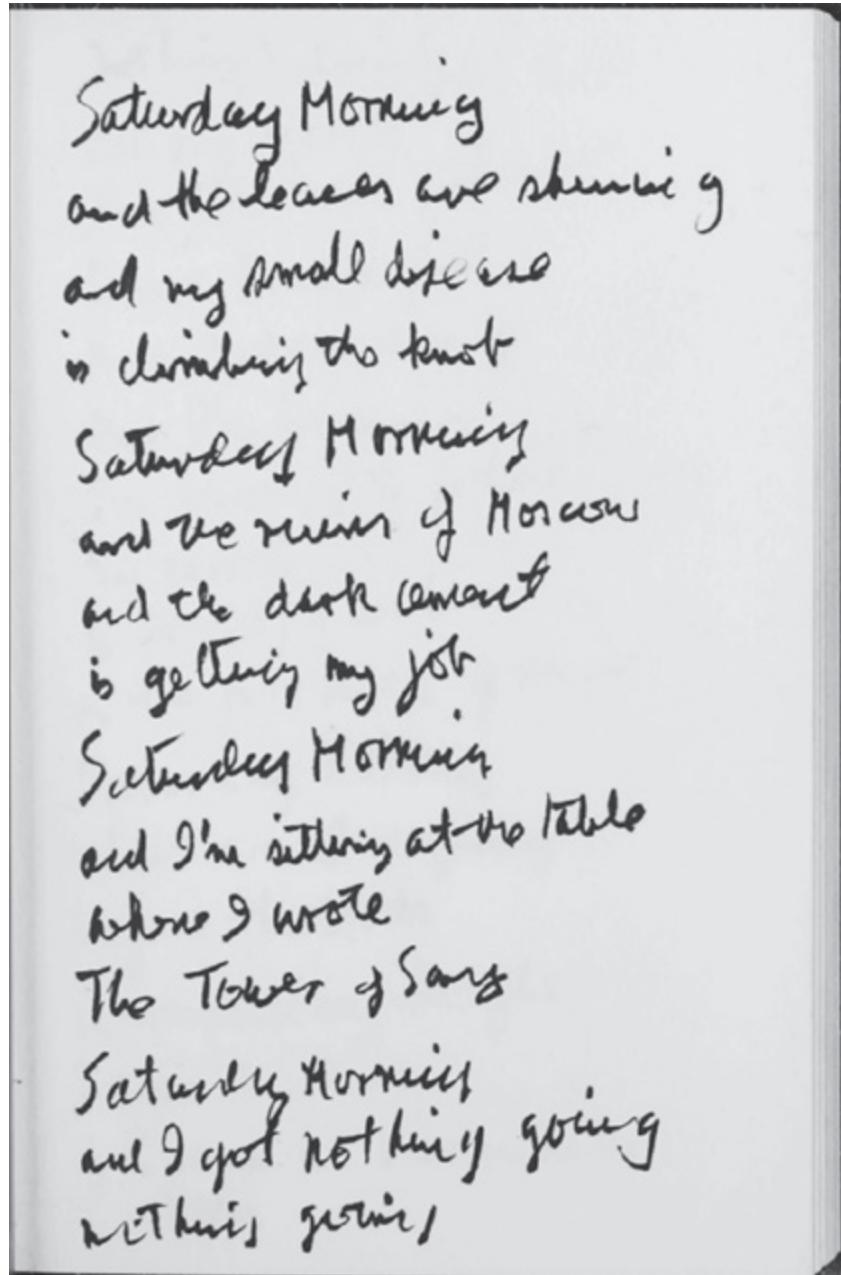 Saturday Morning
and the leaves are shining
and my small disease
is climbing the knob
Saturday Morning
and the ruins of Moscow
and the dark cement
is getting my job
Saturday Morning
and I'm sitting at the table
where I wrote
The Tower of Song
Saturday Morning
and I got nothing going
nothing going